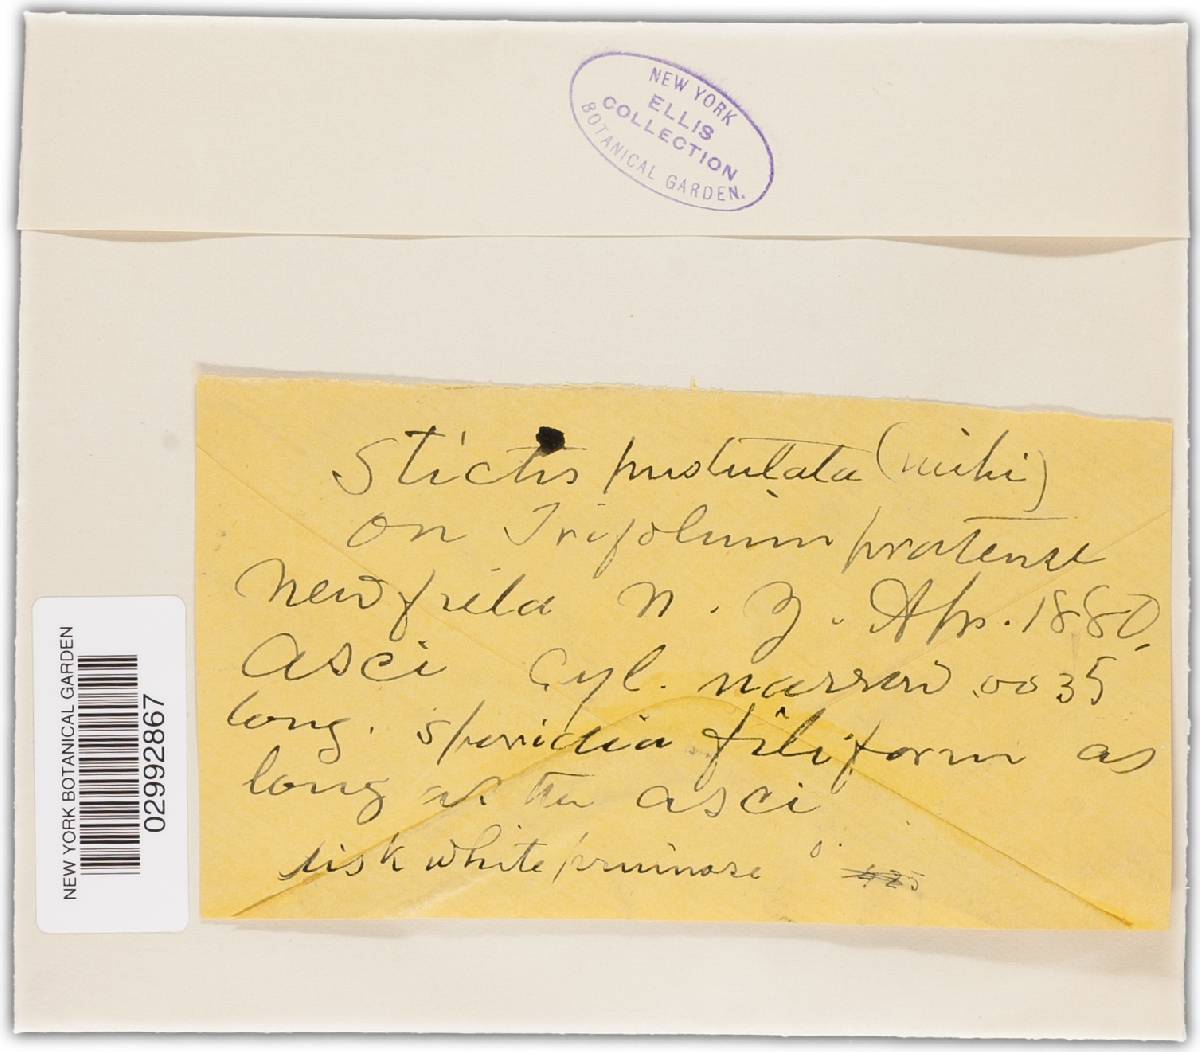 NEW YORK
ELLIS
COLLECTION
BOTANICAL GARDEN.
Stictis pustulata (mihi)
on Trifolium pratense
Newfield N. J. Apr. 1880.
Asci Cyl. narrow .0035
long. sporidia filiform as
long as the asci
disk white pruinose
NEW YORK BOTANICAL GARDEN
02992867